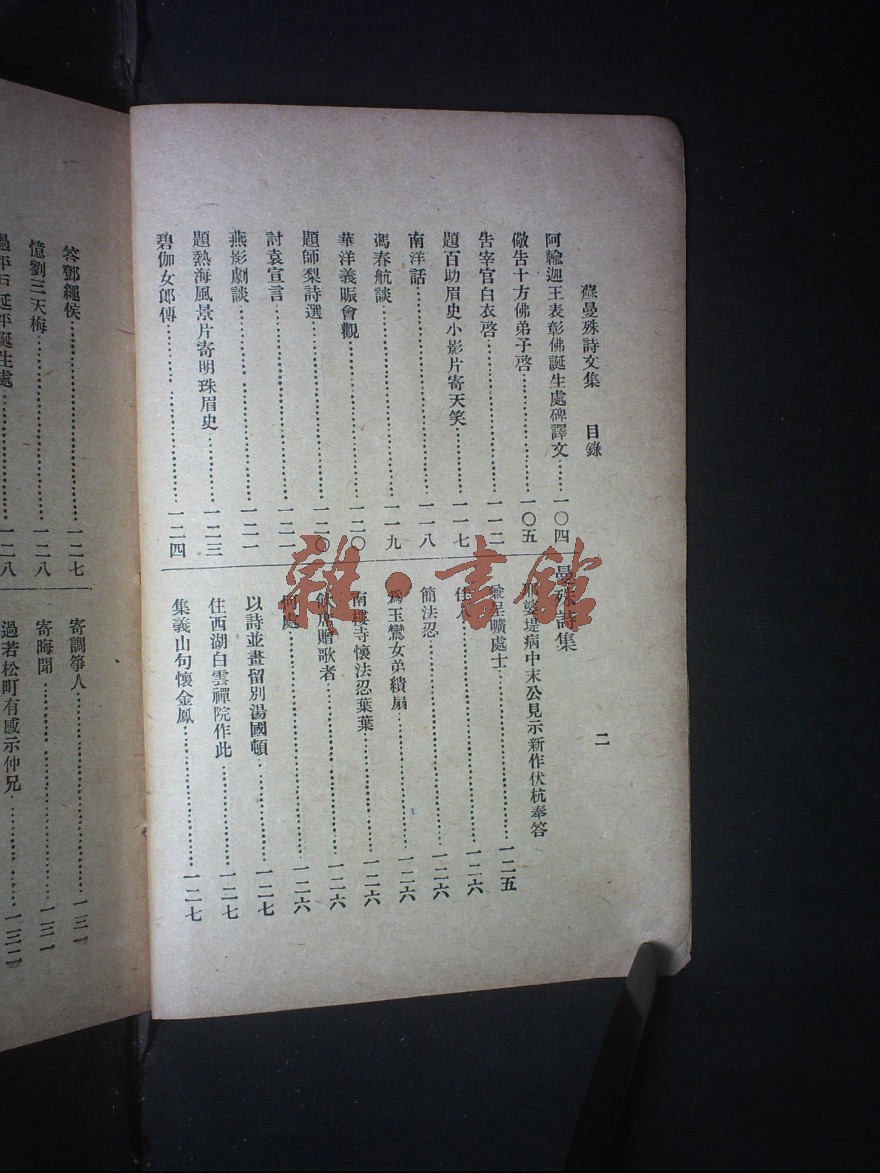 蘇曼殊詩文集　目錄　二
阿輸迦王表彰佛誕生處碑譯文……一〇四
敬告十方佛弟子啓……一〇五
告宰官白衣啓……一一二
題百助眉史小影片寄天笑……一一七
南洋話……一一八
馮春航談……一一九
華洋義賑會觀……一二〇
題師梨詩選……一二〇
討袁宣言……一二一
燕影劇談……一二一
題熱海風景片寄明珠眉史……一二三
碧伽女郎傳……一二四
曼殊詩集
婆堤病中末公見示新作伏枕奉答
兼呈曠處士……一二五
佳人……一二六
簡法忍……一二六
爲玉鸞女弟繢扇……一二六
南樓寺懷法忍葉葉……一二六
飲席贈歌者……一二六
何處……一二六
以詩並畫留別湯國頓……一二七
住西湖白雲禪院作此……一二七
集義山句懷金鳳……一二七
答鄧繩侯……一二七
憶劉三天梅……一二八
過平戶延平誕生處……一二八
寄調箏人……一三一
寄晦聞……一三一
過若松町有感示仲兄……一三二
雜·書館